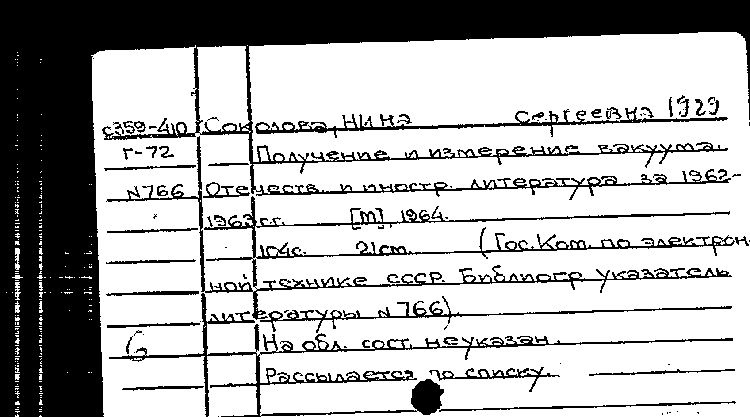 с359-410 Соколова, Нина Сергеевна 1929
Г-72 Получение и измерение вакуума.
N766 Отечеств. и иностр. литература за 1962-
1963 гг. [М], 1964.
104с. 21см. (Гос. Ком. по электрон-
ной технике СССР. Библиогр указатель
литературы N 766).
6 На обл. сост. не указан.
Рассылается по списку.